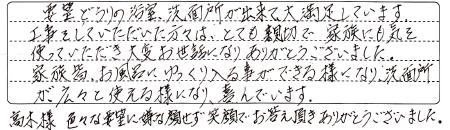 要望どうりの浴室、洗面所が出来て大満足しています。
工事をしていただいた方々は、とても親切で 家族にも気を
使っていただき大変お世話になりありがとうございました。
家族皆、お風呂にゆっくり入る事ができる様になり、洗面所
が広々と使える様になり、喜んでいます。
高木様 色々な要望に嫌な顔せず笑顔でお答え頂きありがとうございました。